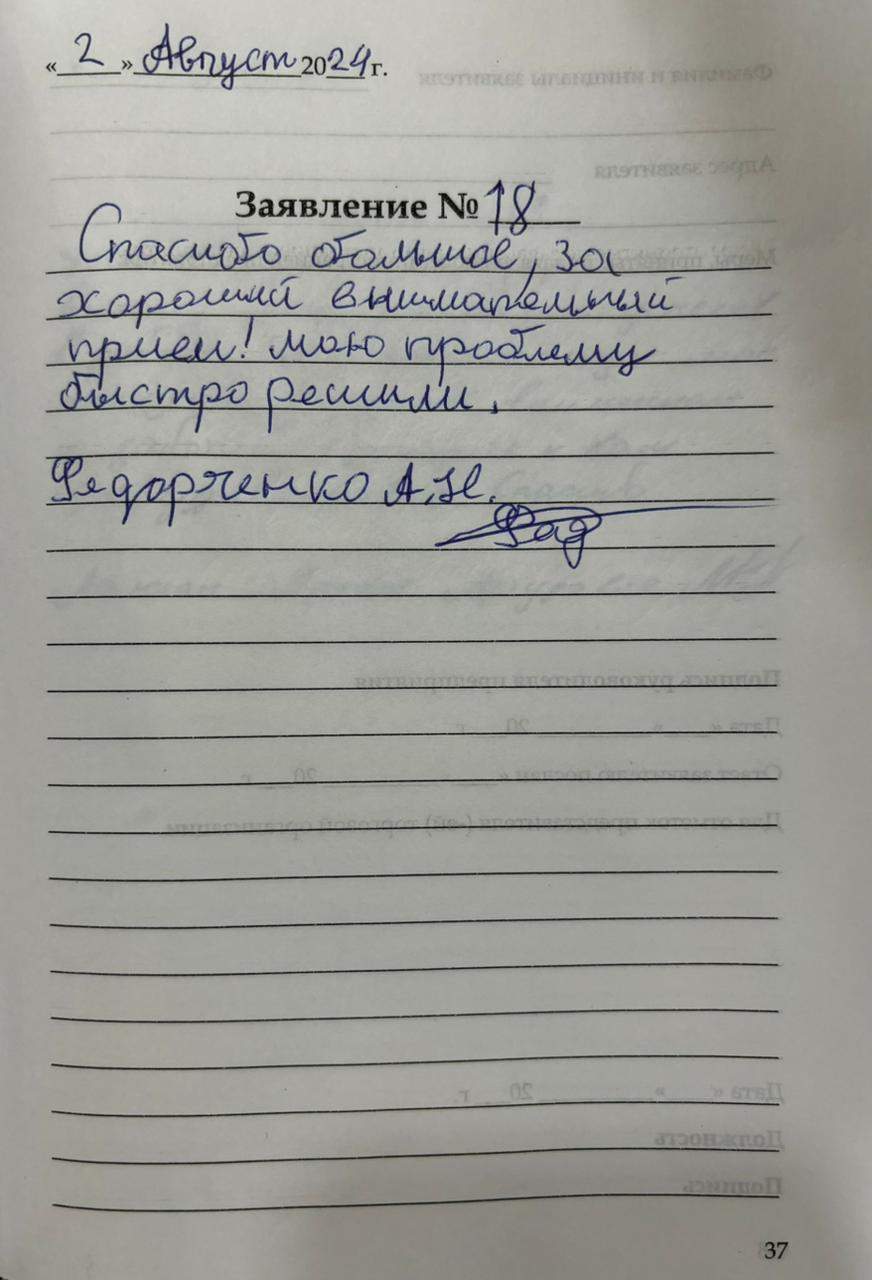 « 2 » Август 2024 г.
Заявление № 18
Спасибо большое, за
хороший внимательный
прием! мою проблему
быстро решили.
Федорченко А.Н.
37